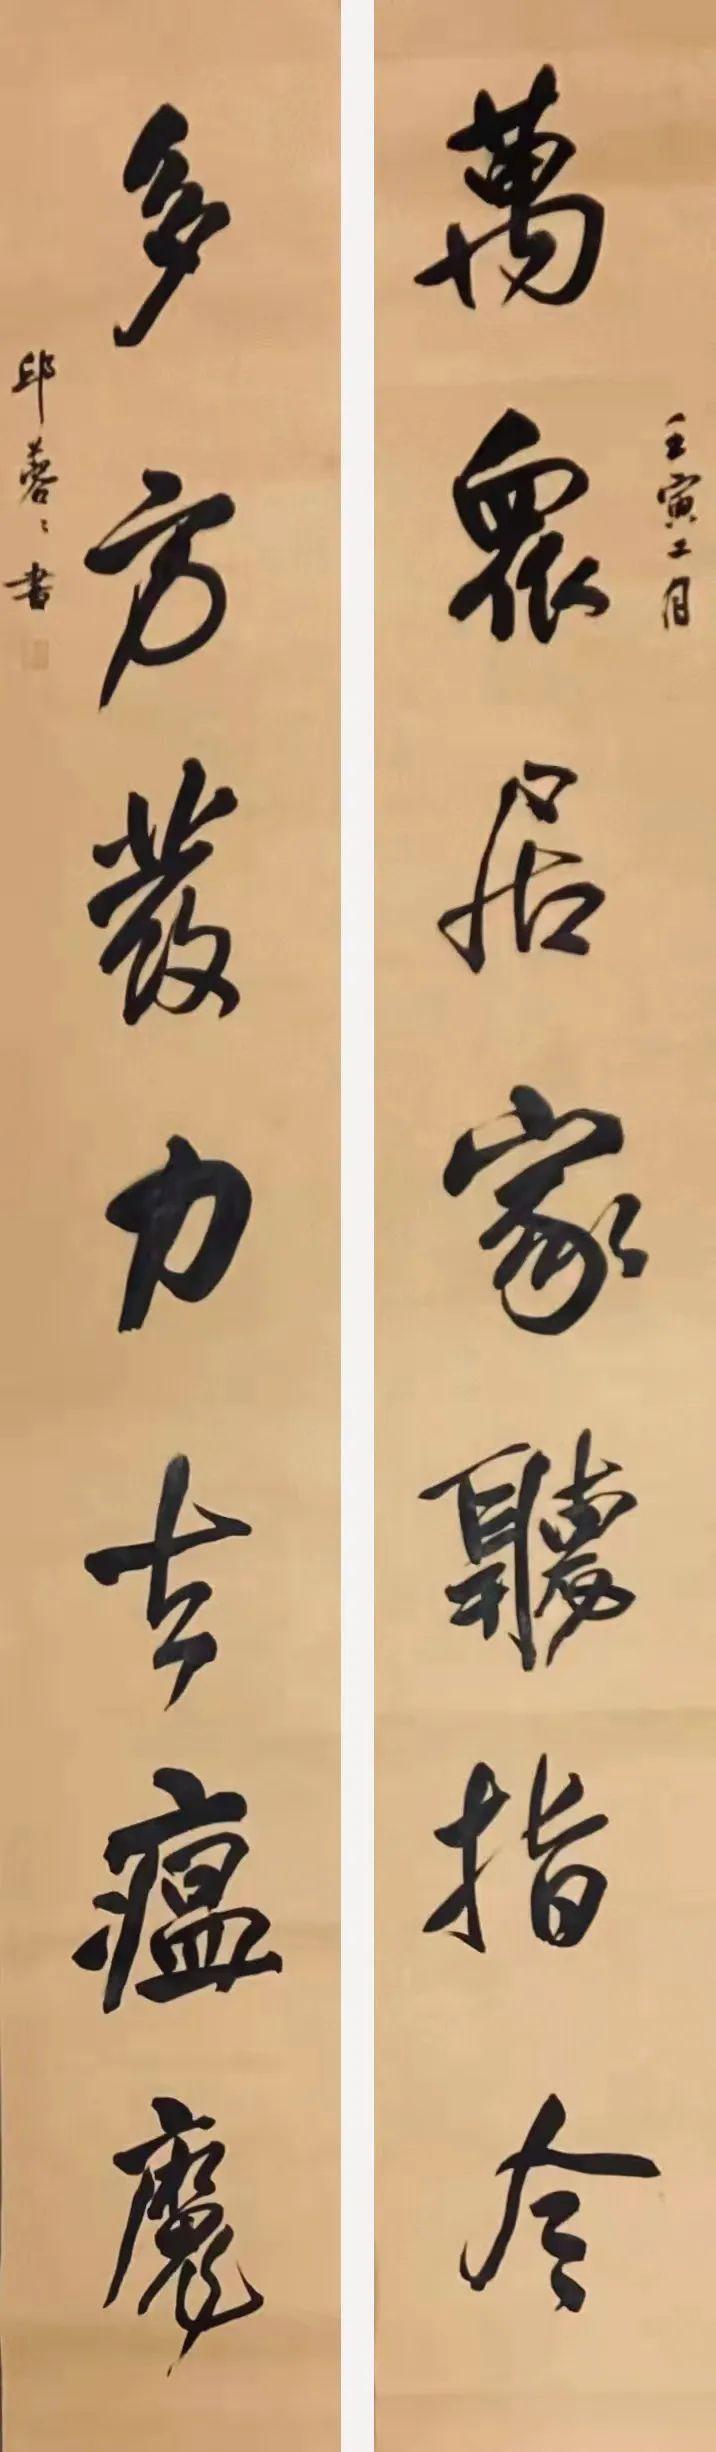 萬眾居家聽指令
壬寅二月
多方發力去瘟魔
邱蓉蓉書